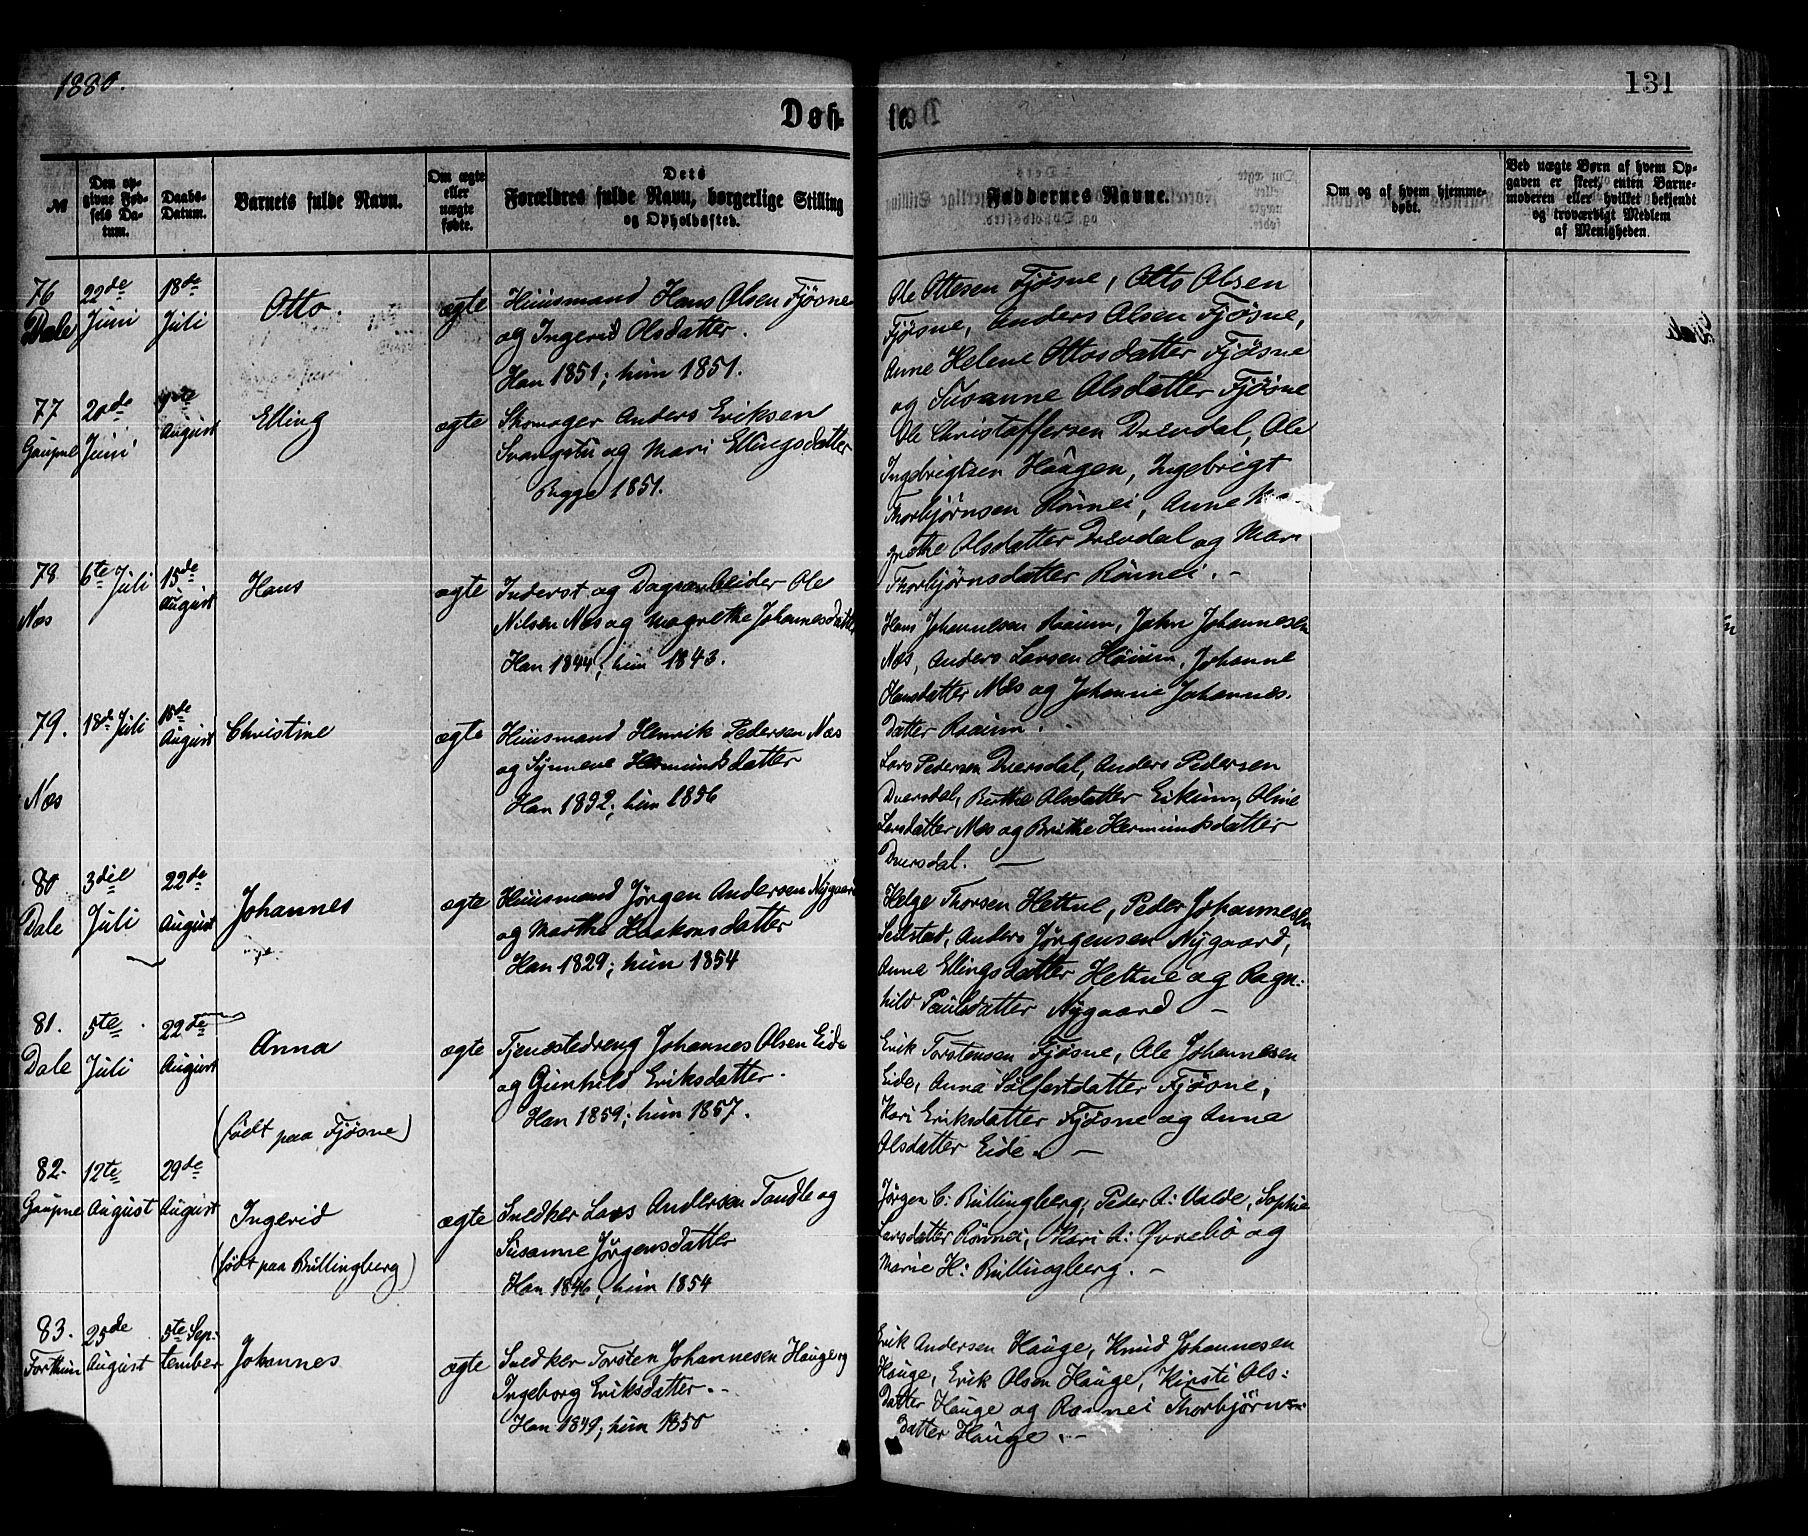 1880.
131
Døb-
te.
№
Den op-
givne Fød-
sels Da-
tum.
Daabs-
Datum.
Barnets fulde Navn.
Om ægte
eller
uægte
fødte.
Dets
Forældres fulde Navn, borgerlige Stilling
og Opholdssted.
Faddernes Navne.
Om og af hvem hjemme-
døbt.
Ved uægte Børn af hvem Op-
gaven er skeet, enten Barne-
moderen eller hvilket bekjendt
og troværdigt Medlem
af Menigheden.
76
Dale
22de
Juni
18de
Juli
Otto.
ægte
Huusmand Hans Olsen Fjøsne
og Ingerid Olsdatter.
Han 1851; hun 1851.
Ole Ottesen Fjøsne, Otto Olsen
Fjøsne, Anders Olsen Fjøsne,
Anne Helene Ottosdatter Fjøsne
og Susanne Olsdatter Fjøsne
77
Gaupne
20de
Juni
August
Elling
ægte
Skomager Anders Eriksen
Svangstu og Mari Ellingsdatter
Begge 1851.
Ole Christoffersen Drevdal, Ole
Ingebrigtsen Haugen, Ingebrigt
Thorbjørnsen Rønnei, Anne
grethe Olsdatter Drevdal og Mari
Thorbjørnsdatter Rønnei. -
78
Næs
6te Juli
15de
August
Hans
ægte
Inderst og Dagsarbeider Ole
Nilsen Næs og Magrethe Johannesdatter
Han 1844; hun 1843.
Hans Johannesen Raaum, John Johannesen
Næs, Anders Larsen Høium, Johanne
Hansdatter Næs og Johanne Johannes-
datter Raaum.
79.
Næs
18de Juli
15de
August
Christine
ægte
Huusmand Henrik Pedersen Næs
og Synneve Hermundsdatter
Han 1852; hun 1856
Lars Pedersen Dversdal, Anders Pedersen
Dversdal, Berthe Olsdatter Eikum, Oline
Larsdatter Næs og Brithe Hermundsdatter
Dversdal. —
80
Dale
3die
Juli
22de
August
Johannes
ægte
Huusmand Jørgen Andersen Nygaard
og Marthe Haakonsdatter
Han 1829; hun 1854
Helge Thorsen Hettne, Peder Johannesen
Seilstad, Anders Jørgensen Nygaard,
Anna Ellingsdatter Hettne og Ragn-
hild Paulsdatter Nygaard -
81.
Dale
5te
Juli
22de
August
Anna
(født paa Fjøsne)
ægte
Tjenestedreng Johannes Olsen Eide
og Gunhild Eriksdatter.
Han 1859; hun 1857.
Erik Torstensen Fjøsne, Ole Johannesen
Eide, Anna Solfestdatter Fjøsne,
Kari Eriksdatter Fjøsne og Anna
Olsdatter Eide. —
82.
Gaupne
12te
August
29de
August
Ingerid
(født paa Bullingberg)
ægte
Snedker Lars Andersen Tandle og
Susanne Jørgensdatter
Han 1846; hun 1854
Jørgen C: Bullingberg, Peder A: Valde, Sophie
Larsdatter Rønnei, Kari A: Øvrebø og
Marie H: Bullingberg. -
83.
Forthun
25de
August
5te Sep-
tember
Johannes
ægte
Snedker Torsten Johannesen Hauge og
Ingeborg Eriksdatter. -
Han 1849; hun 1850
Erik Andersen Hauge, Knud Johannesen
Hauge, Erik Olsen Hauge, Kirsti Ols-
datter Hauge og Rønnei Thorbjørns-
datter Hauge. -